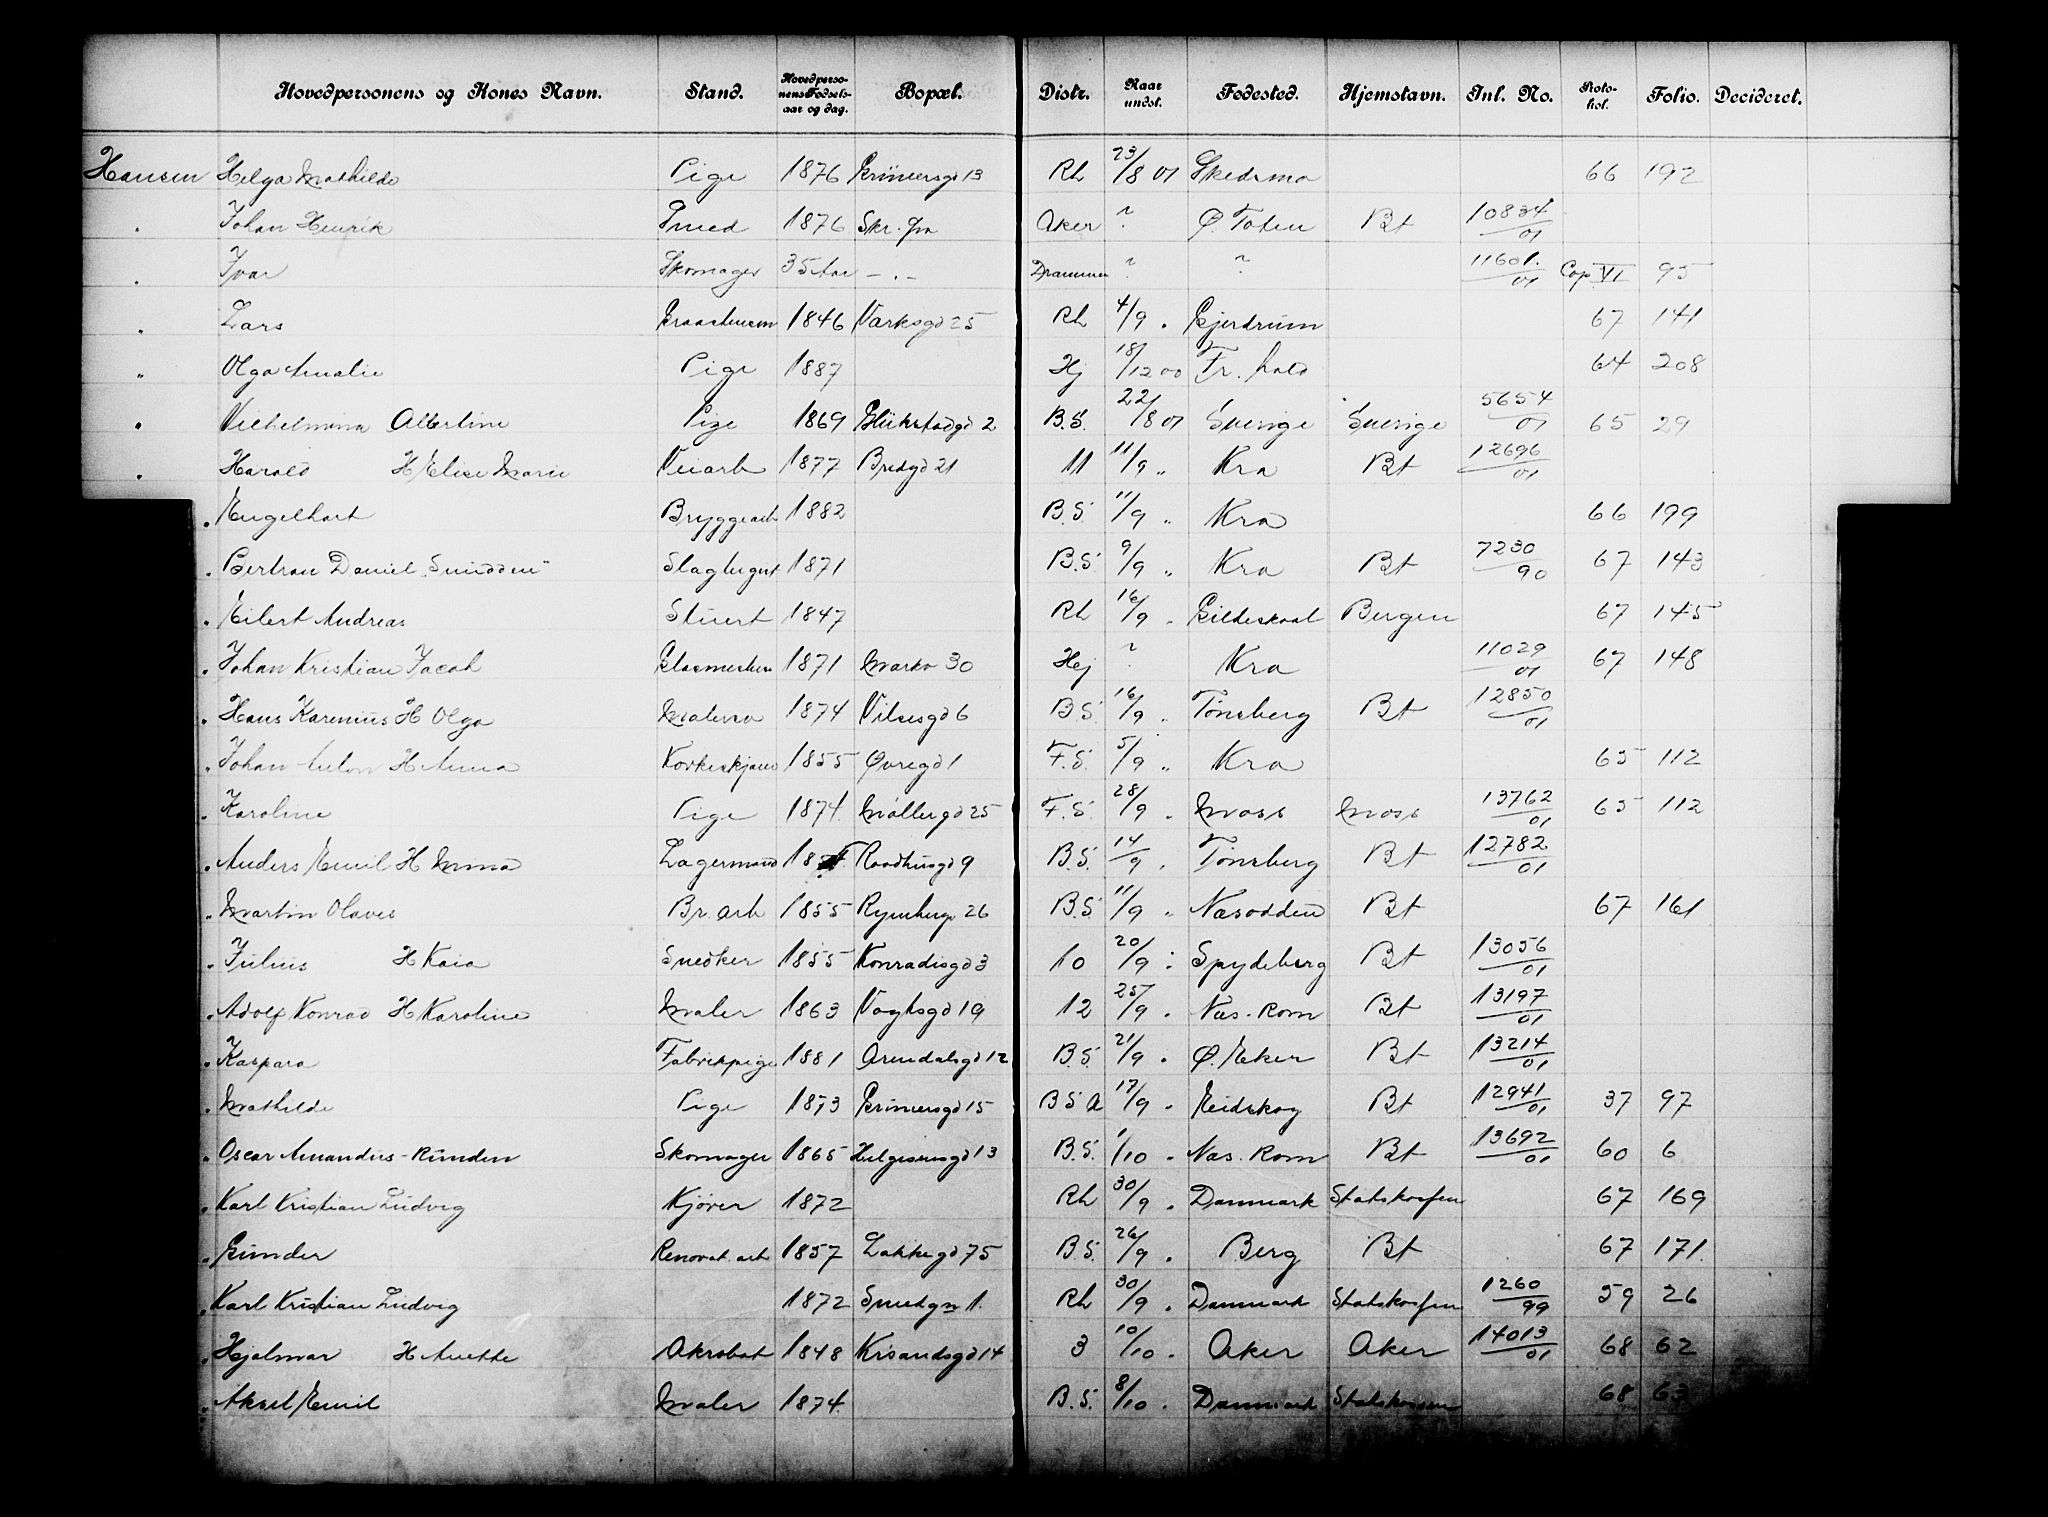 Hovedpersonens og Kones Navn. Stand. Hovedpersonens Fødsels-aar og dag. Bopæl. Distr. Naar undst. Fødested. Hjemstavn. Inl. No. Protokol. Folio. Decideret.
Hansen Helga Mathilde Pige 1876 Grünersgd 13 Rh 23/8 01 Skedsmo 66 192
" Johan Henrik Smed 1876 Skr. fra Aker ? Ø. Toten Bt 10834/01
" Ivar Skomager 35 Aar - " - Drammen ? ? 11601/01 Cop VI 95
" Lars 1846 Værksgd 25 Rh 4/9 " Gjerdrum 67 141
" Olga Amalie Pige 1887 Hj 18/12 00 Fr. hald 64 208
" Vilhelmina Albertine Pige 1869 Glückstadgd 2 B.S. 22/8 01 Sverige Sverige 5654/01 65 29
" Harald H Elise Marie Veiarb 1877 Bredgd 21 11 11/9 " Kra Bt 12696/01
" Engelhart Bryggearb 1882 B.S. 11/9 " Kra 66 199
" Bertran Daniel "Smidden" Slagtergut 1871 B.S. 9/9 " Kra Bt 7230/90 67 143
" Eilert Andreas Stuert 1847 Rh 16/9 " Gildeskaal Bergen 67 145
" Johan Kristian Jacob Glasmester 1871 Markv 30 Hej ? Kra 11029/01 67 148
" Hans Karenius H Olga Malersv 1874 Vilsesgd 6 B.S. 16/9 " Tønsberg Bt 12850/01
" Johan Anton H Anna Korkeskjærer 1855 Øvregd 1 F.S. 5/9 " Kra 65 112
" Karoline Pige 1874 Møllergd 25 F.S. 28/9 " Moss Moss 13762/01 65 112
" Anders Emil H Anna Lagermand Raadhusgd 9 B.S. 14/9 " Tønsberg Bt 12782/01
" Martin Olaves Br. arb 1855 26 B.S. 11/9 " Næsodden Bt 67 161
" Julius H Kaia Snedker 1855 Konradisgd 3 10 20/9 " Spydeberg Bt 13056/01
" Adolf Konrad H Karoline Maler 1863 Vogtsgd 19 12 25/9 " Næs. Rom Bt 13197/01
" Kaspara Fabrikpige 1881 Arendalsgd 12 B.S. 21/9 " Ø. Eker Bt 13214/01
" Mathilde Pige 1873 Grünersgd 15 B S A 17/9 " Eidskog Bt 12941/01 37 97
" Oscar Amandus - Runden Skomager 1865 Helgesensgd 13 B.S. 1/10 " Næs. Rom Bt 13692/01 60 6
" Karl Kristian Ludvig Kjører 1872 Rh 30/9 " Danmark Statskassen 67 169
" Gunder Renovat. arb 1857 Lakkegd 75 B.S. 26/9 " Berg Bt 67 171
" Karl Kristian Ludvig 1872 Smedgn 1. Rh 30/9 " Danmark Statskassen 1260/99 59 26
" Hjalmar H Anette Akrobat 1848 Krsandsgd 14 3 10/10 " Aker Aker 14013/01 68 62
" Aksel Emil Maler 1874 B.S. 8/10 " Danmark Statskassen 68 63